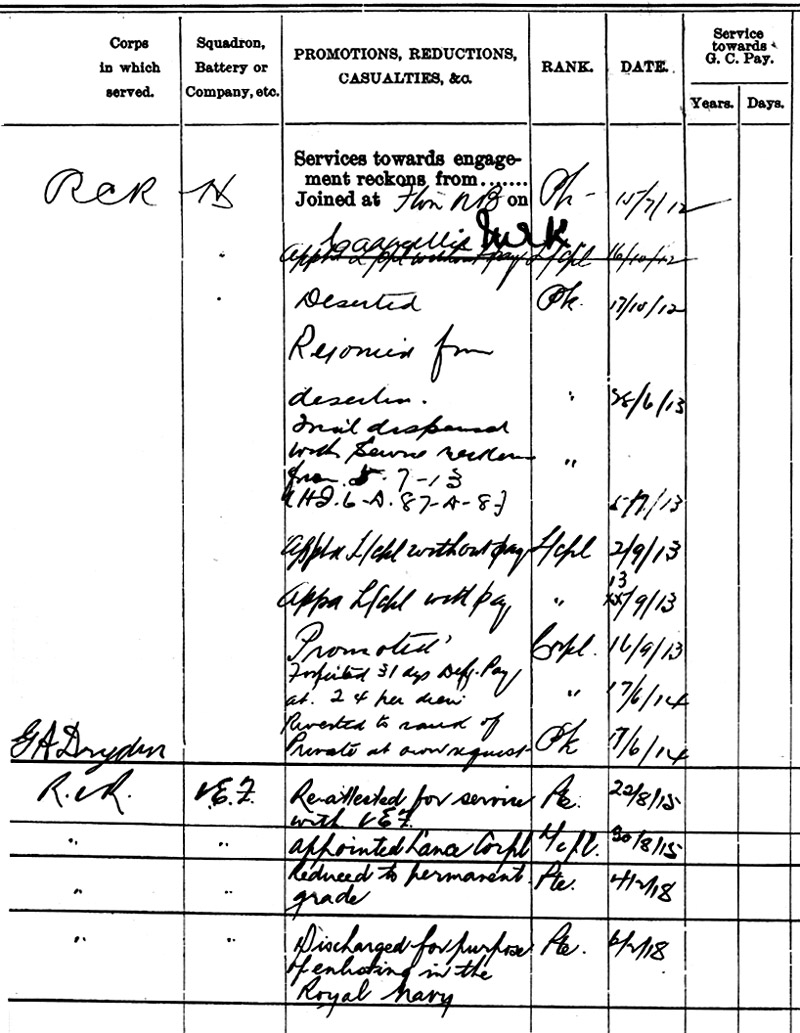 Corps
in which
served.
Squadron,
Battery or
Company, etc.
PROMOTIONS, REDUCTIONS,
CASUALTIES, &c.
RANK.
DATE.
Service
towards
G. C. Pay.
Years.
Days.
Services towards engage-
ment reckons from.......
RCR H Joined at F'ton NB on Pte 15/7/12
Appt'd L/Cpl without pay L/Cpl 16/10/12
" Deserted Pte. 17/10/12
Rejoined from
desertion. " 28/6/13
Trial dispensed
with Service
from 5-7-13 "
(H.Q. 6-D. 87-A-8) 5/7/13
Apptd L/Cpl without pay L/Cpl 2/9/13
Appd L/Cpl with pay " 13/9/13
Promoted Corpl. 16/9/13
Forfeited 31 dys Def. Pay
at. 24 per diem " 17/6/14
Reverted to rank of
GA Dryden Private at own request Pte 17/6/14
R.C.R. C.E.F. Re-attested for service Pte. 22/8/15
with C.E.F.
" " appointed Lance Corpl L/Cpl. 30/8/15
" " Reduced to permanent Pte. 4/2/18
grade
" " Discharged for purpose Pte. 6/2/18
of enlisting in the
Royal Navy